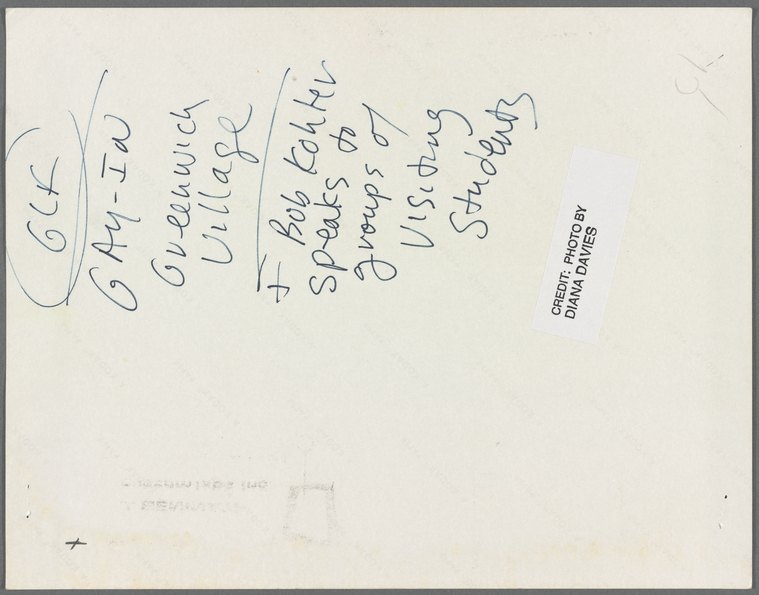 GLF
GAY-IN
Greenwich
Village
Bob Kohler
speaks to
groups of
Visiting
Students
CREDIT: PHOTO BY
DIANA DAVIES